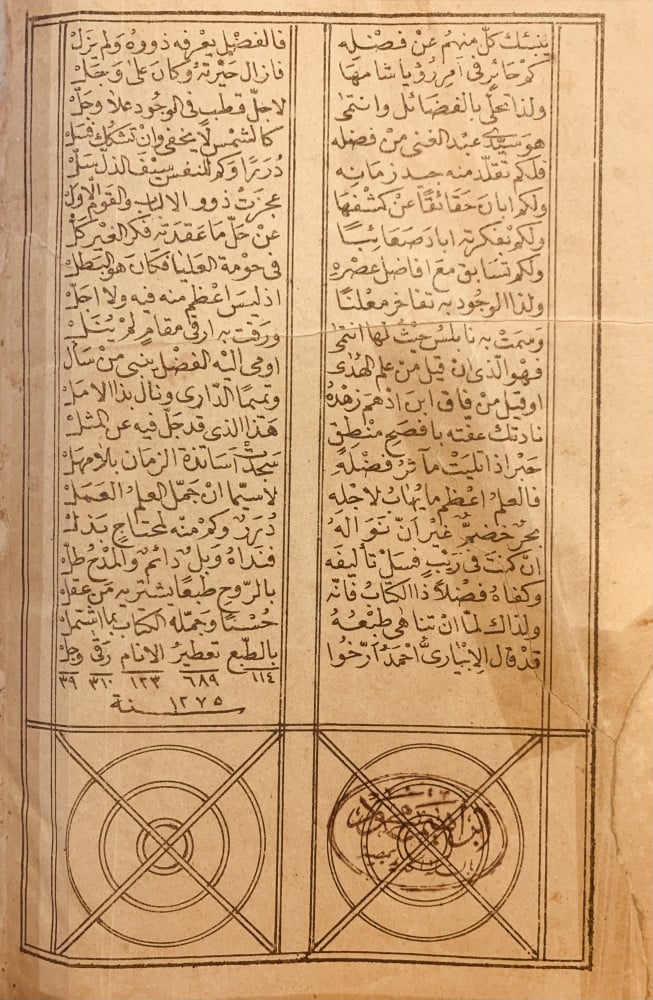 ينبئك كلّ منهم عن فضله فالفضل يعرفه ذووه ولم نزل
كم حائر في امر رؤيا شامها فازال حيرته وكان على وجل
ولذا تحلّى بالفضائل وانتمى لاجلّ قطب في الوجود علا وجلّ
هو سيدي عبد الغني من فضله كالشمس لا يخفى وان تشكك فسل
فلكم تقلّد منه جيد زمانه دررًا وكم للنفس سيف الذل سلّ
ولكم ابان حقائقًا عن كشفها عجزت ذوو الالباب والقوم الاول
ولكم بفكرته اباد صعائبًا عن حلّ ما عقدته فكر الغير كلّ
ولكم تسابق مع افاضل عصره في حومة العليا فكان هو البطل
ولذا الوجود به تفاخر معلنًا اذ ليس اعظم منه فيه ولا اجلّ
وسمت به نابلس حيث لها انتمى ورقت به ارقى مقام لم ينل
فهو الذي ان قيل من علم الهدى اومى اليه الفضل ينبي من سأل
او قيل من فاق ابن ادهم زهده وتميمًا الداري ونال بذا الامل
نادتك عفّته بافصح منطق هذا الذي قد جلّ فيه عن المثل
حبر اذا تليت مآثر فضله سجدت اساتذة الزمان بلا مهل
فالعلم اعظم ما يهاب لاجله لا سيما ان جمّل العلم العمل
بحر خضمّ غير انّ نواله درر وكم منه لمحتاج بذل
ان كنت في ريب فسل تأليفه فنداه وبل دائم والمدح طلّ
وكفاه فضلاً ذا الكتاب فانّه بالرّوح طبعًا يشتريه من عقل
ولذاك لمّا ان تناهى طبعه حسنًا وجمّله الكتاب بما اشتمل
قد قال الابياريّ احمد ارّخوا بالطبع تعطير الانام رقى وجلّ
١١٤ ٦٨٩ ١٢٣ ٣١٠ ٣٩
سنة ١٢٧٥